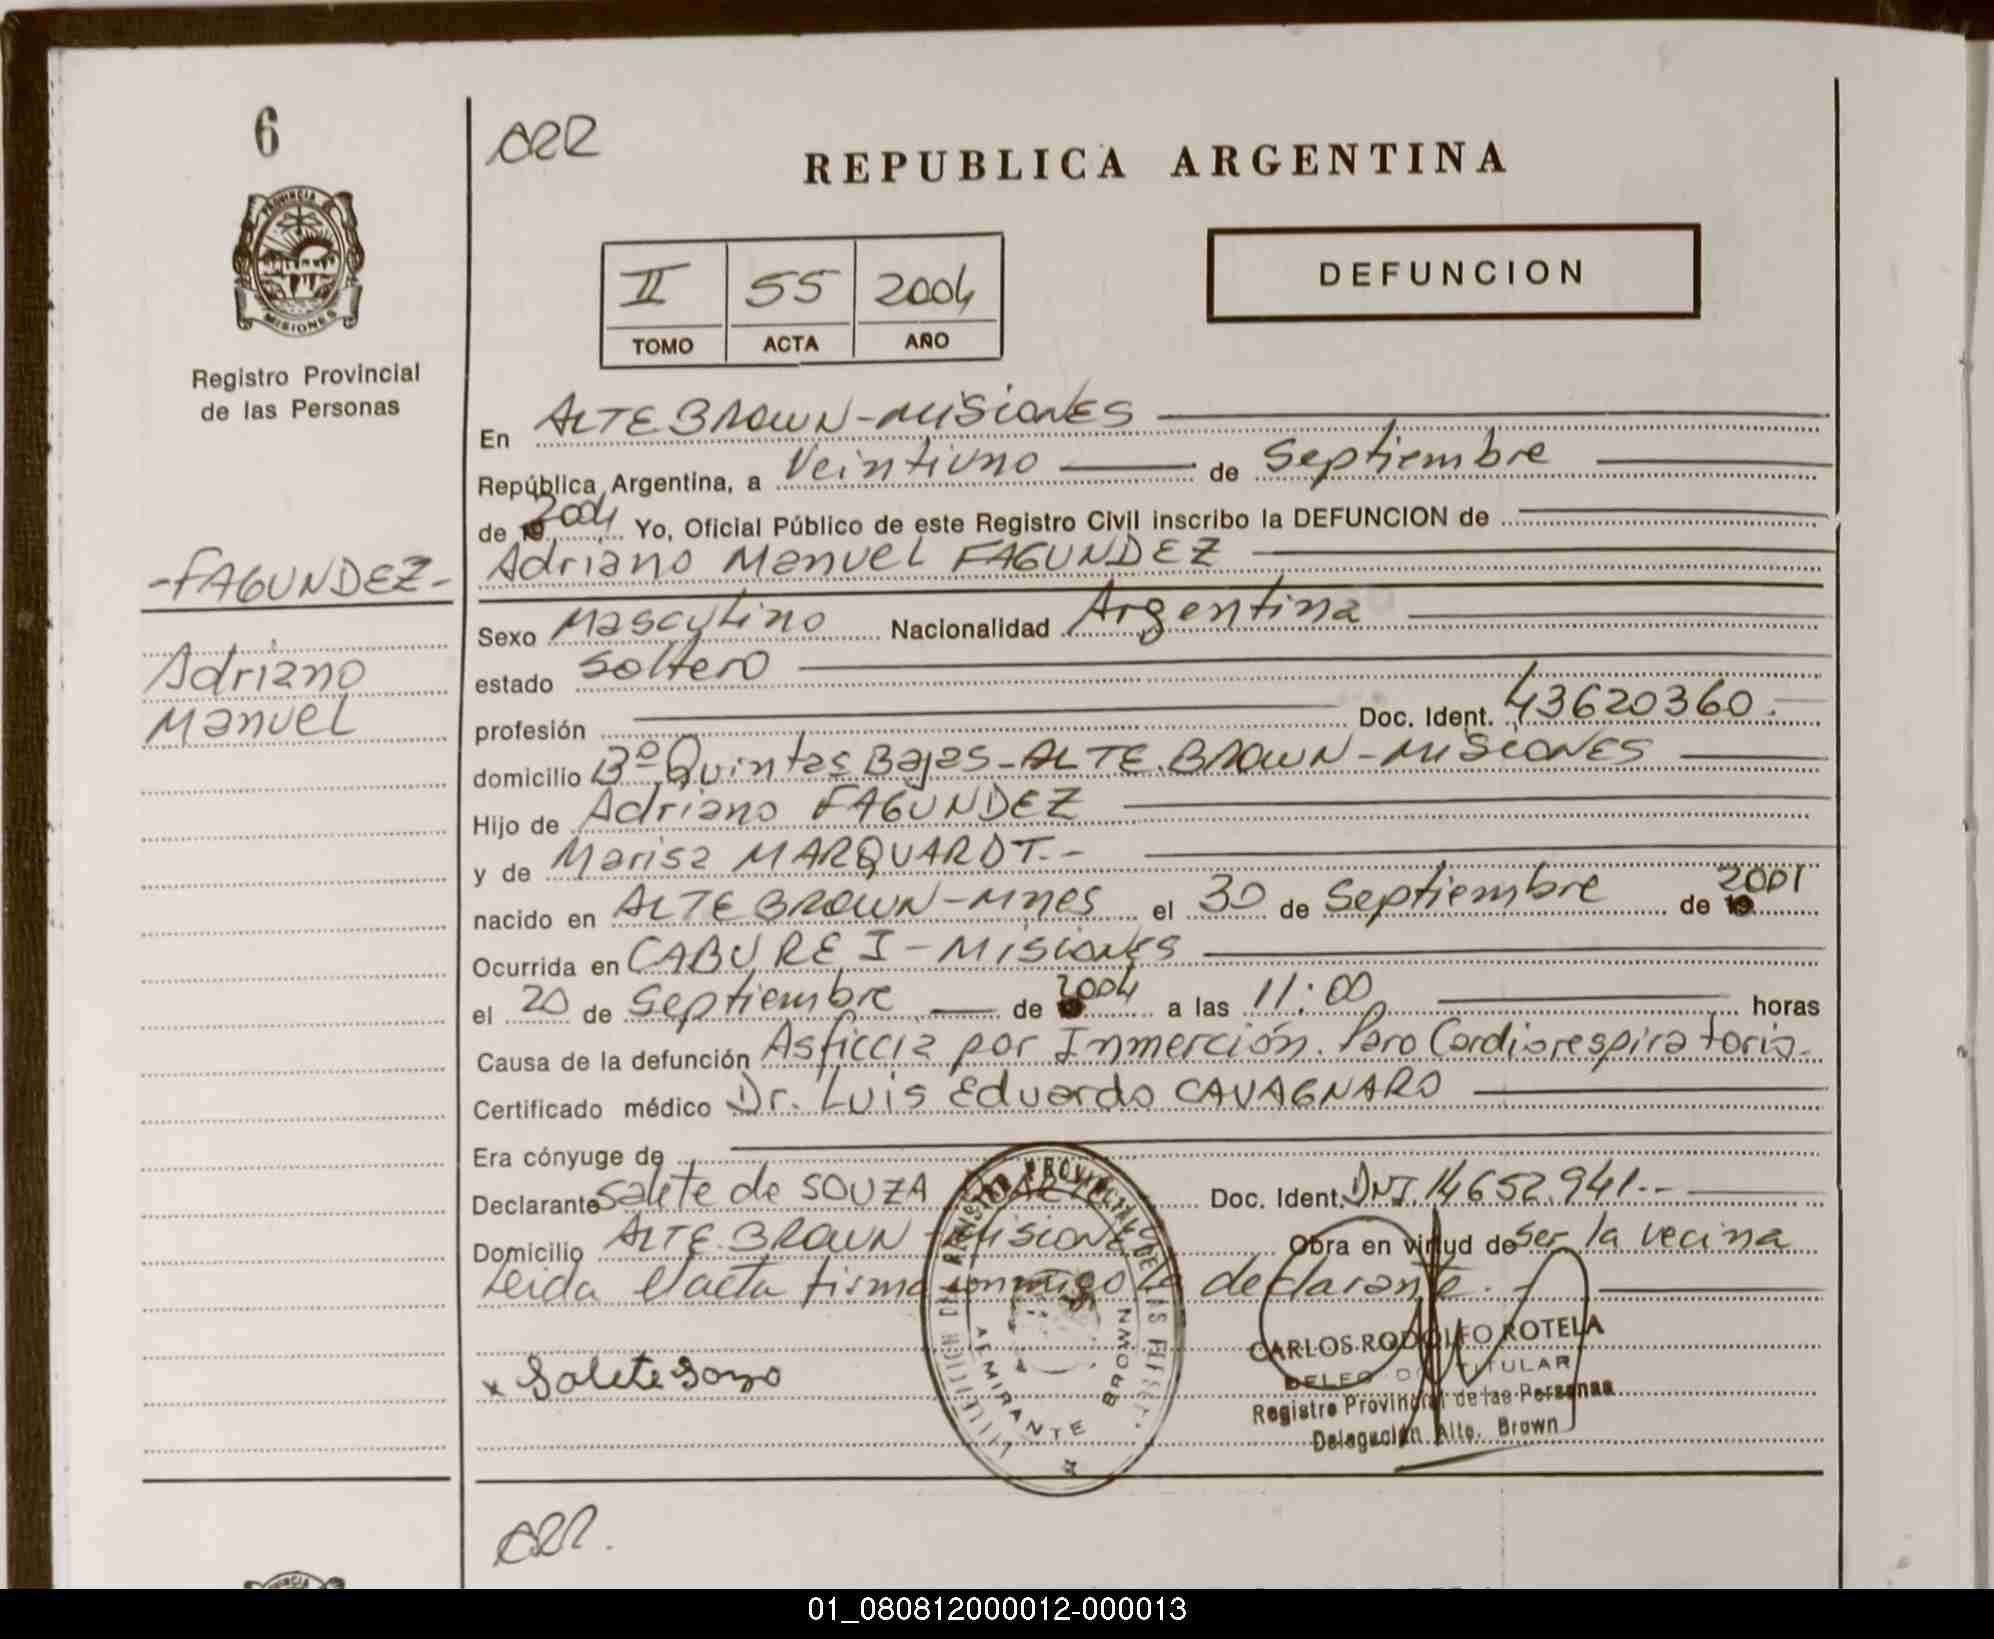 6
CRR
REPUBLICA ARGENTINA
PROVINCIA
MISIONES
Registro Provincial
de las Personas
II 55 2004
TOMO ACTA AÑO
DEFUNCION
En ALTE BROWN-MISIONES
República Argentina, a Veintiuno de Septiembre
de 2004 Yo, Oficial Público de este Registro Civil inscribo la DEFUNCION de
-FAGUNDEZ-
Adriano
Manuel
Adriano Manuel FAGUNDEZ
Sexo Masculino Nacionalidad Argentina
estado Soltero
profesión Doc. Ident. 43620360.-
domicilio Bº Quintas Bajas-ALTE.BROWN-MISIONES
Hijo de Adriano FAGUNDEZ
y de Marisa MARQUARDT.-
nacido en ALTE BROWN-Mnes el 30 de Septiembre de 2001
Ocurrida en CABURE I-MISIONES
el 20 de Septiembre de 2004 a las 11:00 horas
Causa de la defunción Asficcia por Inmerción. Paro Cardiorespiratorio.
Certificado médico Dr. Luis Eduardo CAVAGNARO
Era cónyuge de
Declarante Salete de SOUZA Doc. Ident. DNI.14652.941.--
Domicilio ALTE.BROWN-MISIONES Obra en virtud de ser la vecina
Leida el acta firma conmigo la declarante.-
x Salete Sozo
ALMIRANTE BROWN
CARLOS RODOLFO ROTELA
DELEGADO TITULAR
Registro Provincial de las Personas
Delegación Alte. Brown
CRR.
01_080812000012-000013